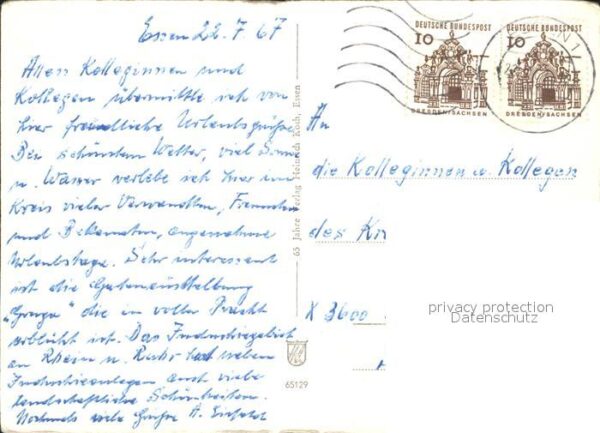 Essen 22.7.67
Allen Kolleginnen und
Kollegen übermittle ich von
hier freundliche Urlaubsgrüße.
Bei schönstem Wetter, viel Sonne
u. Wasser verlebe ich hier im
Kreis vieler Verwandten, Freunden
und Bekannten, angenehme
Urlaubstage. Sehr interessant
ist die Gartenausstellung
„Gruga" die in voller Pracht
erblüht ist. Das Industriegebiet
an Rhein u. Ruhr hat neben
Industrieanlagen auch viele
landschaftliche Schönheiten.
Nochmals viele Grüße A.
65 Jahre Verlag Heinrich Koch, Essen
65129
DEUTSCHE BUNDESPOST
10
DRESDEN/SACHSEN
DEUTSCHE BUNDESPOST
10
DRESDEN/SACHSEN
An
die Kolleginnen u. Kollegen
des
X 3600
privacy protection
Datenschutz